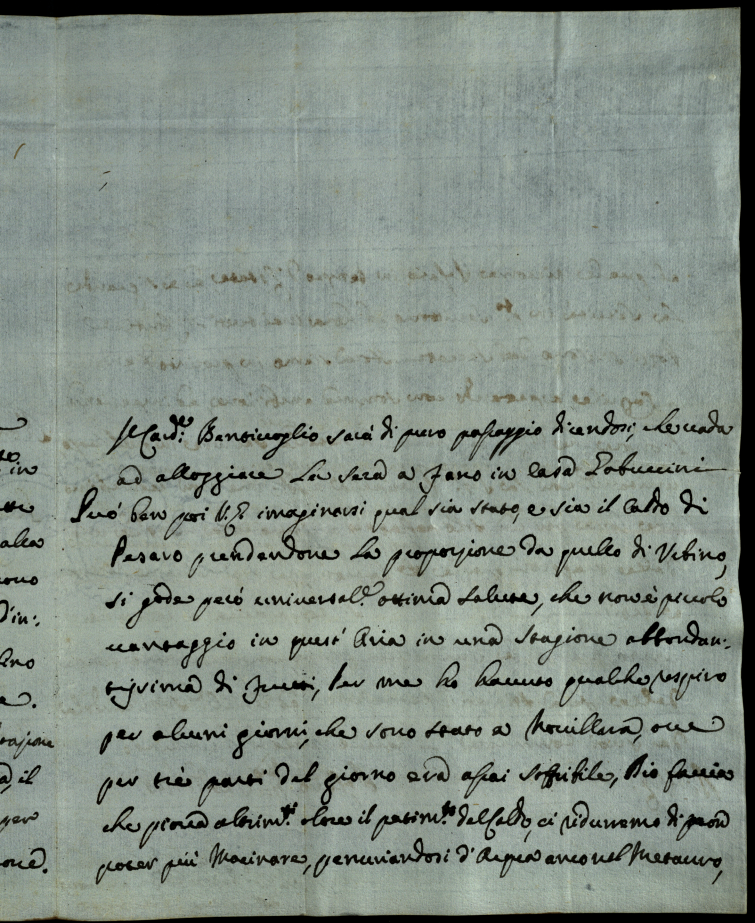 Il Card.le Bentivoglio sarà di puro passaggio dicendosi, che vada
ad alloggiare la sera a Fano in Casa Zabuccini
Può ben poi V.E. imaginarsi qual sia stato, e sia il Caldo di
Pesaro prendendone la proporzione da quello di Urbino,
si gode però universal.e ottima salute, che non è piccolo
vantaggio in quest' Aria in una stagione abbondan:
tissima di frutti, Per me ho havuto qualche respiro
per alcuni giorni, che sono stato a Novillara, ove
per trè parti del giorno era assai soffribile, Dio faccia
che piova altrim.ti oltre il patim.to del Caldo, ci ridurremo di non
poter più Macinare, penuriandosi d'Acqua anco nel Metauro,
in
alla
D'in:
e.
il
per